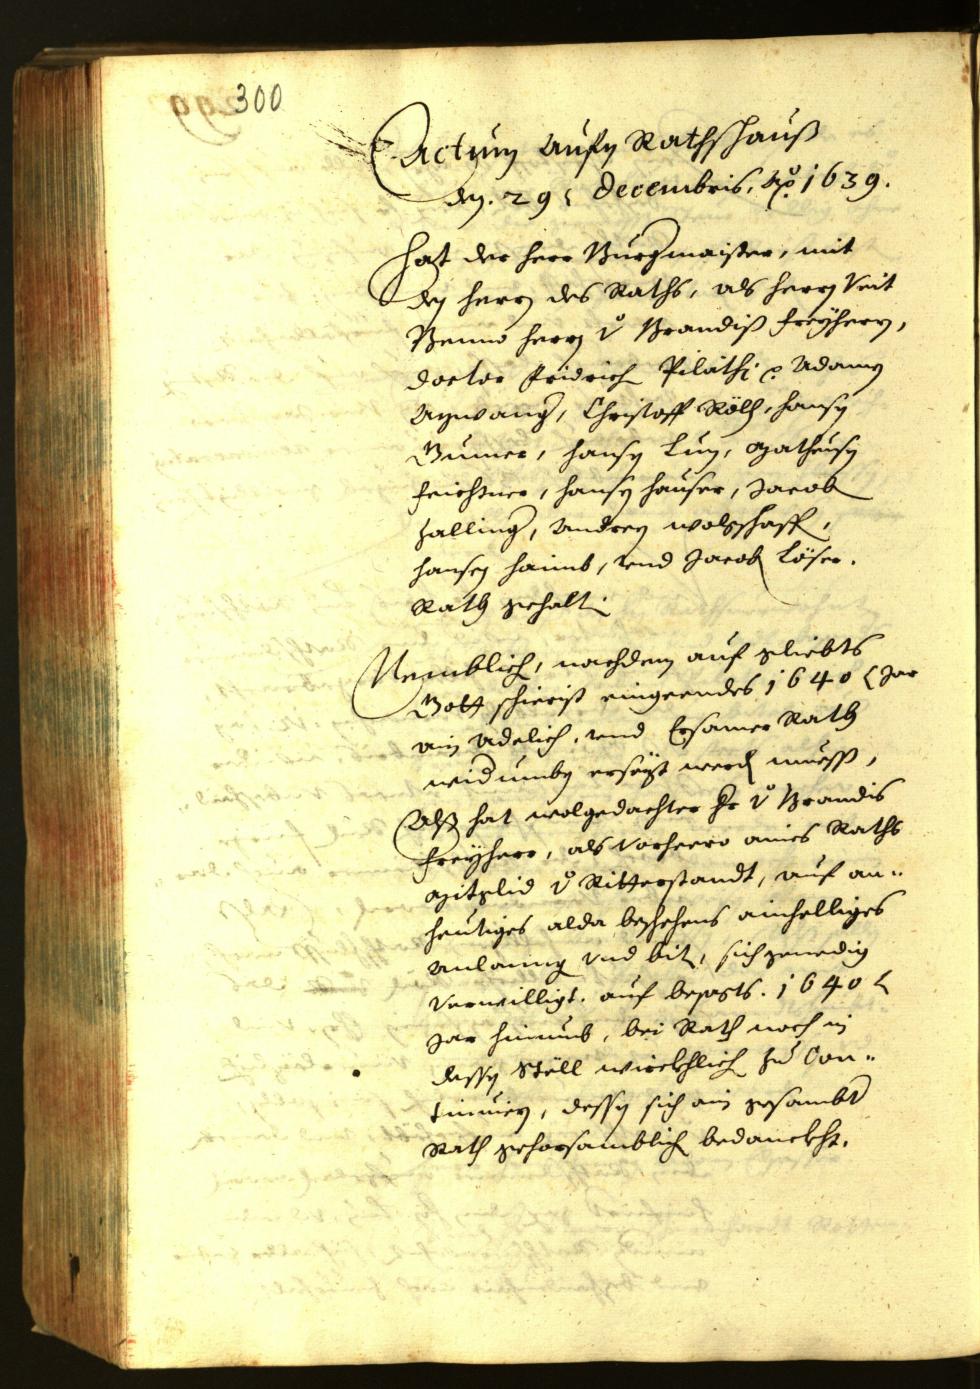 300
Actum aufn Rathshauß
den. 29 decembris, Ao. 1639.
Hat der herr Burgermaister, mit
den herrn des Raths, als herrn Veit
Benno herrn v. Brandiß freyherrn,
doctor Fridrich Pilathi, Adamen
Christoff Röll, Hansen
Hansen Lun, Matheusen
Feichtner, Hansen Hauser, Jacob
Zalling, Andreen
Hansen Haimb, vnd Jacob Löser.
Rath gehalten
Nemblich, nachdem auf geliebts
Gott schierist eingeendes 1640 Jar
ain Adelich, vnd Ersamer Rath
widerumben ersözt werden muess,
Alß hat wolgedachter Hr v. Brandis
freyherr, als vorherr aines Raths
mitglid v. Ritterstandt, auf an-
heutiges alda beschehens ainhelliges
anlanng vnd bit, sich genedig
verwilligt. auf besagts. 1640
Jar hinumb, bei Rath noch in
dessen Stöll würckhlich zu Con-
tinuiern, dessen sich ain gesambter
Rath gehorsamblich bedanckht.